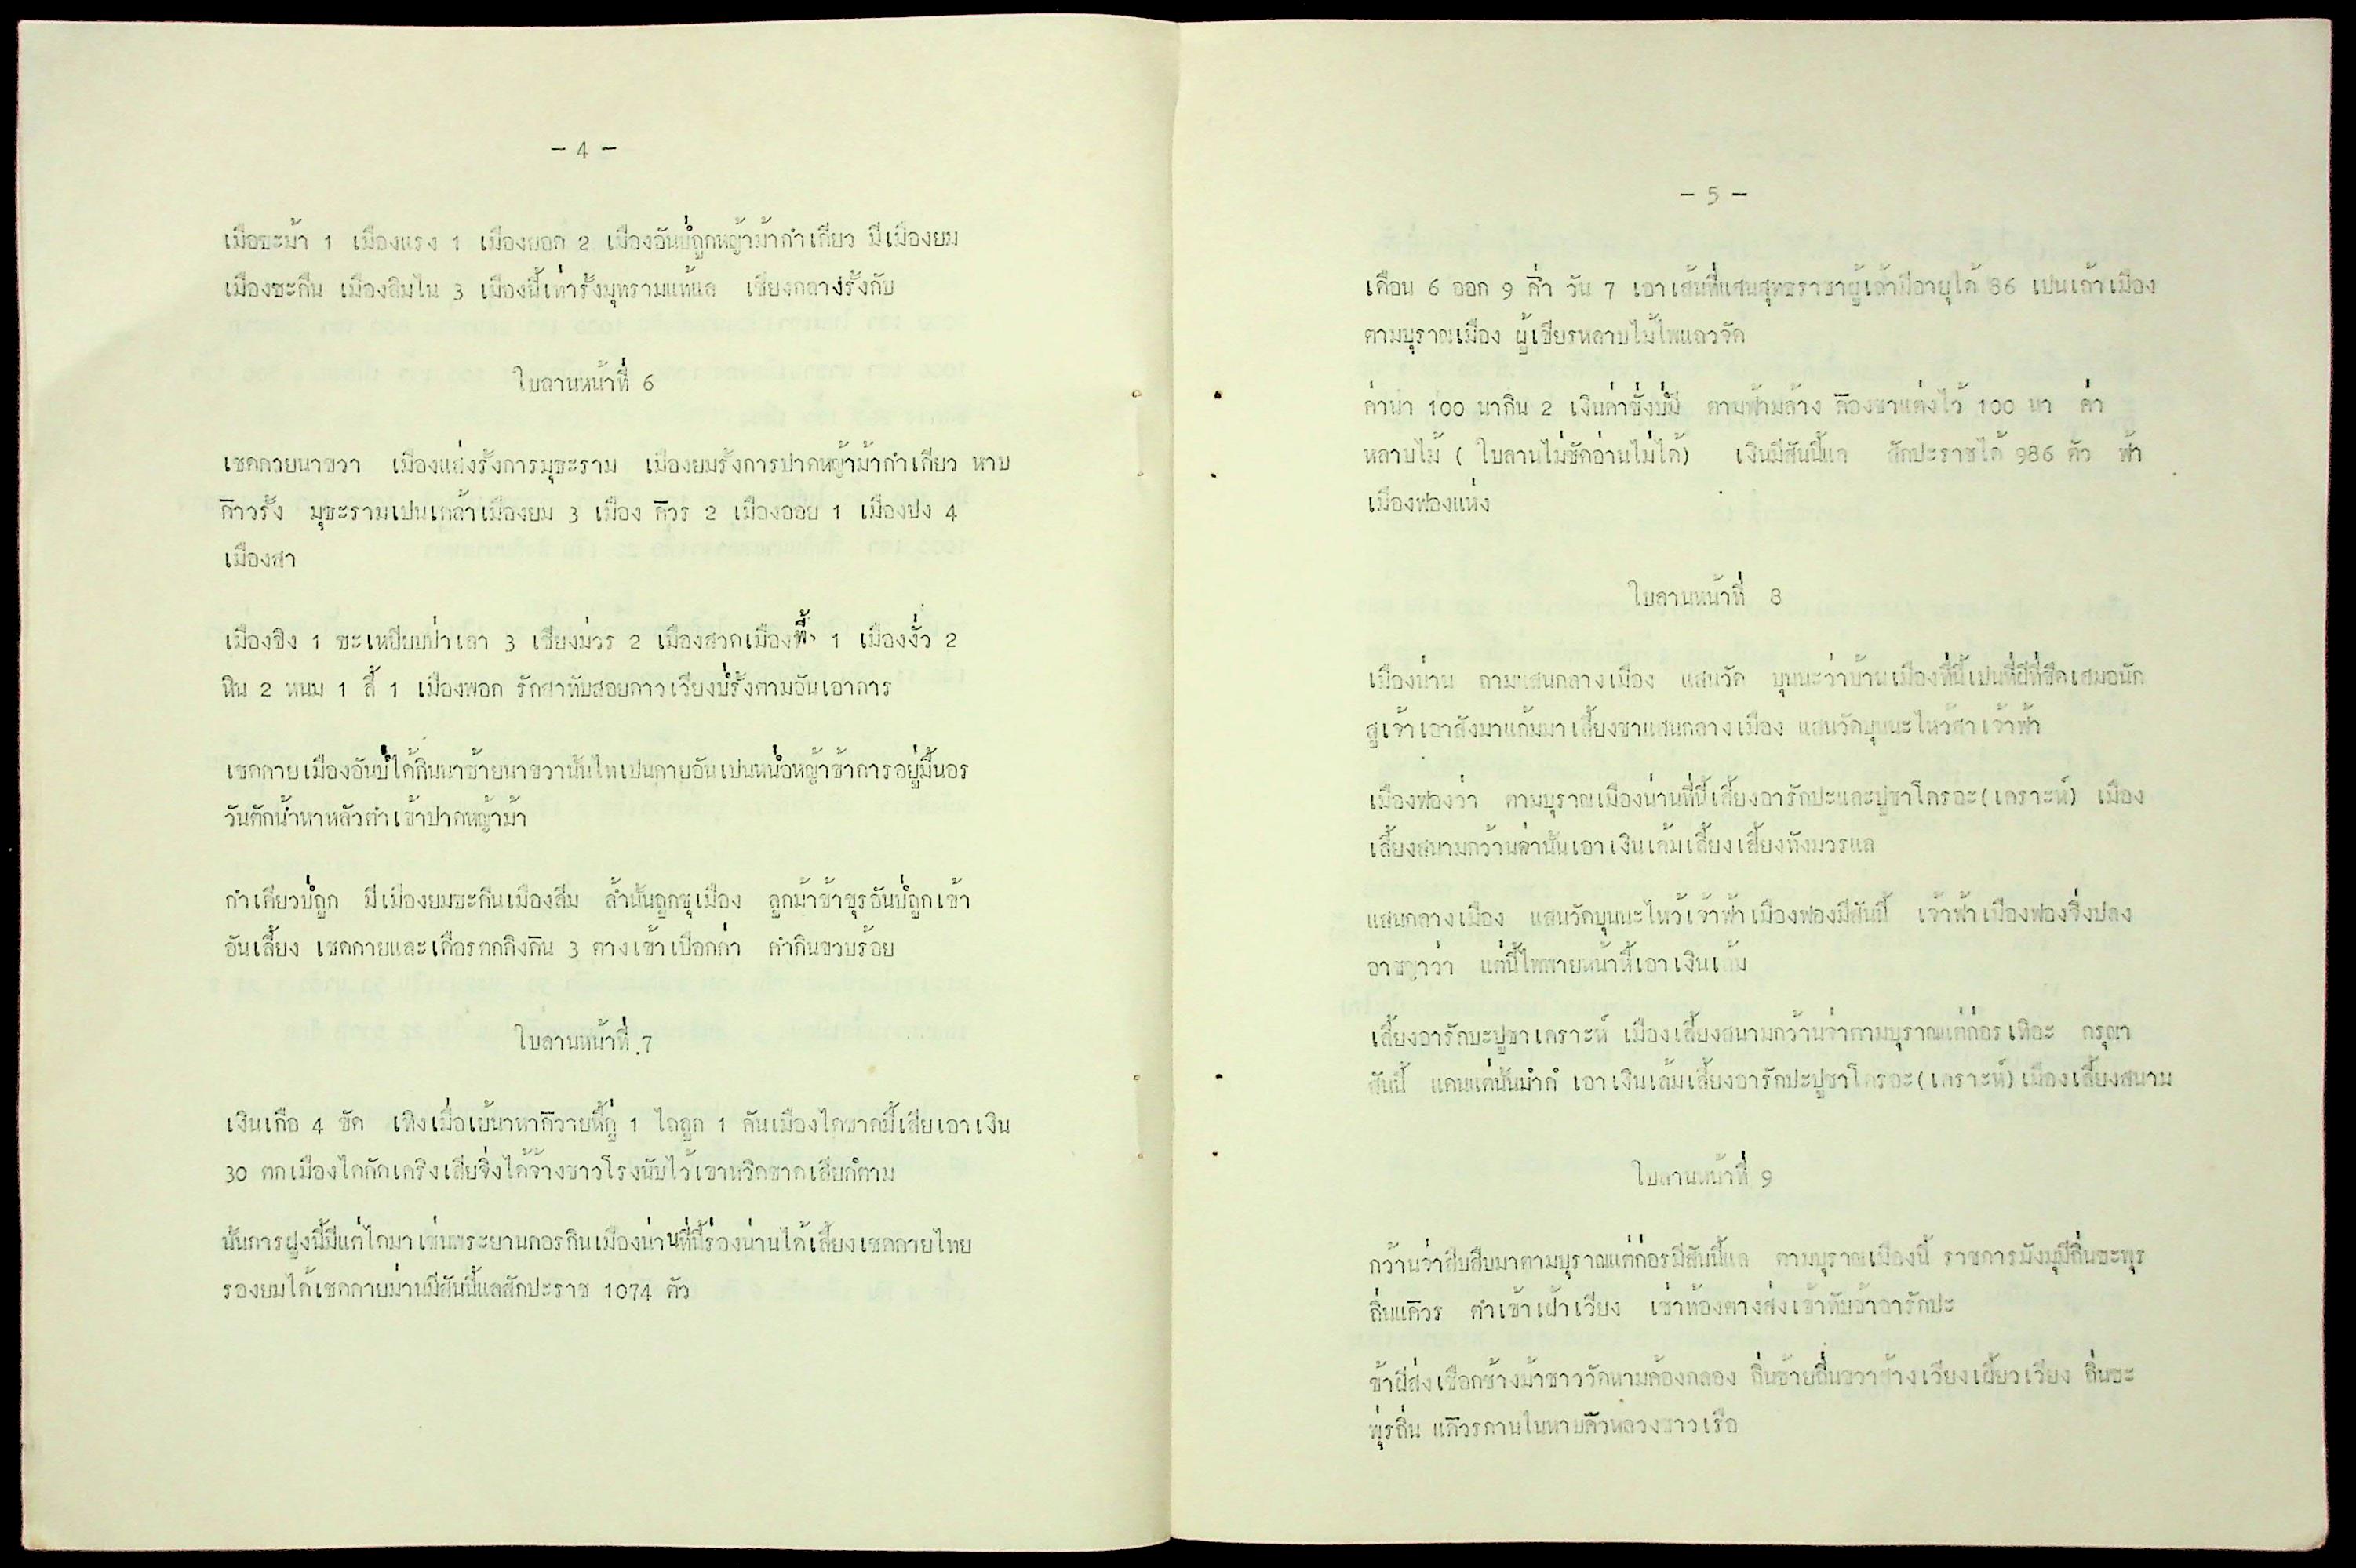 - 4 -
เมือชะม้า 1 เมืองแรง 1 เมืองออก 2 เมืองอันบ่ถูกหญ้าม้ากำเกียว มีเมืองยม
เมืองชะกืน เมืองลิมใน 3 เมืองนี้เท่ารั้งมุทรามแท้แล เชียงกลางรั้งกับ
ใบลานหน้าที่ 6
เชคกายนาขวา เมืองแส่งรั้งการมุธะราม เมืองยมรั้งการปาดหญ้าม้ากำเกียว หาบ
ก๊าวรั้ง มุธะรามเปนเกล้าเมืองยม 3 เมือง ก๊วร 2 เมืองออย 1 เมืองปง 4
เมืองสา
เมืองขิง 1 ชะเหยียบป่าเลา 3 เชียงม่วร 2 เมืองสวดเมืองพี้ 1 เมืองงั่ว 2
หิน 2 หนม 1 ลี้ 1 เมืองพอก รักสาทับสอยกาวเวียงบ่รั้งตามอันเอาการ
เชคกายเมืองอันบ่ได้กินนาซ้ายนาขวานั้นไหเปนกายอันเปนหน่อหญ้าข้าการอยู่มี้นอร
วันตักน้ำหาหลัวตำเข้าปาดหญ้าม้า
กำเคียวบ่ถูก มีเมืองยมชะกืนเมืองลีม ล้ำนั้นถูกชุเมือง ลูกม้าช้าขุรอันบ่ถูกเข้า
อันเลี้ยง เชคกายและเดือรตกกิงกัน 3 ตางเข้าเปือกก่า คำกินขวบร้อย
ใบลานหน้าที่ 7
เงินเกือ 4 ขัด เหิงเมื่อเย้นาหากิวายหื้คู่ 1 ไถลูก 1 คันเมืองไดขาดมี้เสียเอาเงิน
30 ตกเมืองไดกัดเคริงเสียจิ่งได้จ้างชาวโรงนับไว้เขาหริดขาดเสียก็ตาม
นันการฝูงนี้มีแต่ไดมาเช่นพระยานดอรกินเมืองน่านที่นี้ร่องน่านได้เลี้ยงเชคกายไทย
รองยมได้เชคกายม่านมีสันนี้แลสักปะราช 1074 ตัว
- 5 -
เดือน 6 ออก 9 ค่ำ วัน 7 เอาเส้นที่แสนสุทธราชาผู้เถ้ามีอายุได้ 86 เปนเถ้าเมือง
ตามบุราณเมือง ผู้เขียรหลาบไม้ไพแถวจัด
ค่านา 100 นากิน 2 เงินค่าซั่งบ่มี ตามฟ้ามล้าง ก๊องขาแต่งไว้ 100 นา ค่า
หลาบไม้ ( ใบลานไม่ชัดอ่านไม่ได้) เงินมีสันนี้แล สักปะราชได้ 986 ตัว ฟ้า
เมืองฟองแห่ง
ใบลานหน้าที่ 8
เมืองน่าน ถามแสนกลางเมือง แสนวัด บุนนะว่าบ้านเมืองที่นี้เปนที่ผีที่ขึดเสมอนัก
สูเจ้าเอาสังมาแก้มมาเลี้ยงชาแสนกลางเมือง แสนวัดบุนนะไหว้สาเจ้าฟ้า
เมืองฟองว่า ตามบุราณเมืองน่านที่นี้เลี้ยงอารักปะและปูชาโครอะ(เคราะห์) เมือง
เลี้ยงสนามกว้านค่านั้นเอาเงินเล้มเลี้ยงเลี้ยงทังมวรแล
แสนกลางเมือง แสนวัดบุนนะไหว้เจ้าฟ้าเมืองฟองมีสันนี้ เจ้าฟ้าเมืองฟองจิ่งปลง
อาชญาว่า แต่นี้ไพพายหน้าหื้เอาเงินเล้ม
เลี้ยงอารักบะปูชาเคราะห์ เมืองเลี้ยงสนามกว้านจ่าตามบุราณแต่ก่อรเทิอะ กรุณา
สันนี้ แดนแต่นั้นมาก๋ เอาเงินเล้มเลี้ยงอารักปะปูชาโครอะ(เคราะห์)เมืองเลี้ยงสนาม
ใบลานหน้าที่ 9
กว้านว่าสืบสืบมาตามบุราณแต่ก่อรมีสันนี้แล ตามบุราณเมืองนี้ ราชการมังมุมีถิ่นชะพุร
ถิ่นแก๊วร ตำเข้าเฝ้าเวียง เช่าห้องตางส่งเข้าทับข้าอารักปะ
ข้าผีส่งเชือกช้างม้าชาววัดหามค้องกลอง ถิ่นซ้ายถิ่นขวาส้างเวียงเผี้ยวเวียง ถิ่นชะ
พุ่รถิ่น แก๊วรกานในหาบคัวหลวงชาวเรือ